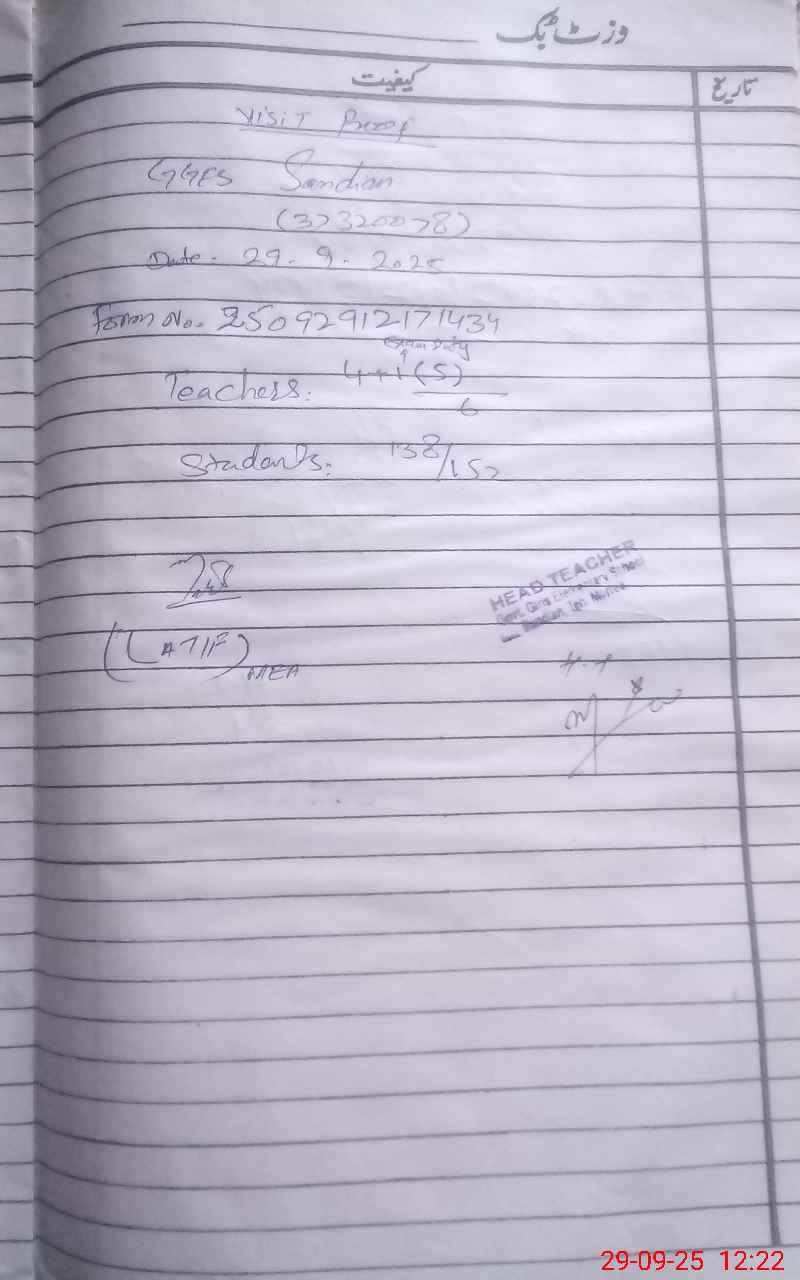 وزٹ بک
کیفیت تاریخ
Visit Proof
GGES Sandian
(37320078)
Date. 29. 9. 2025
Form No. 25092912171434
Exam Duty
Teachers: 4+1(5)
6
Students: 138/152
(LATIF) MEA
HEAD TEACHER
Govt. Girls Elementary School
29-09-25 12:22